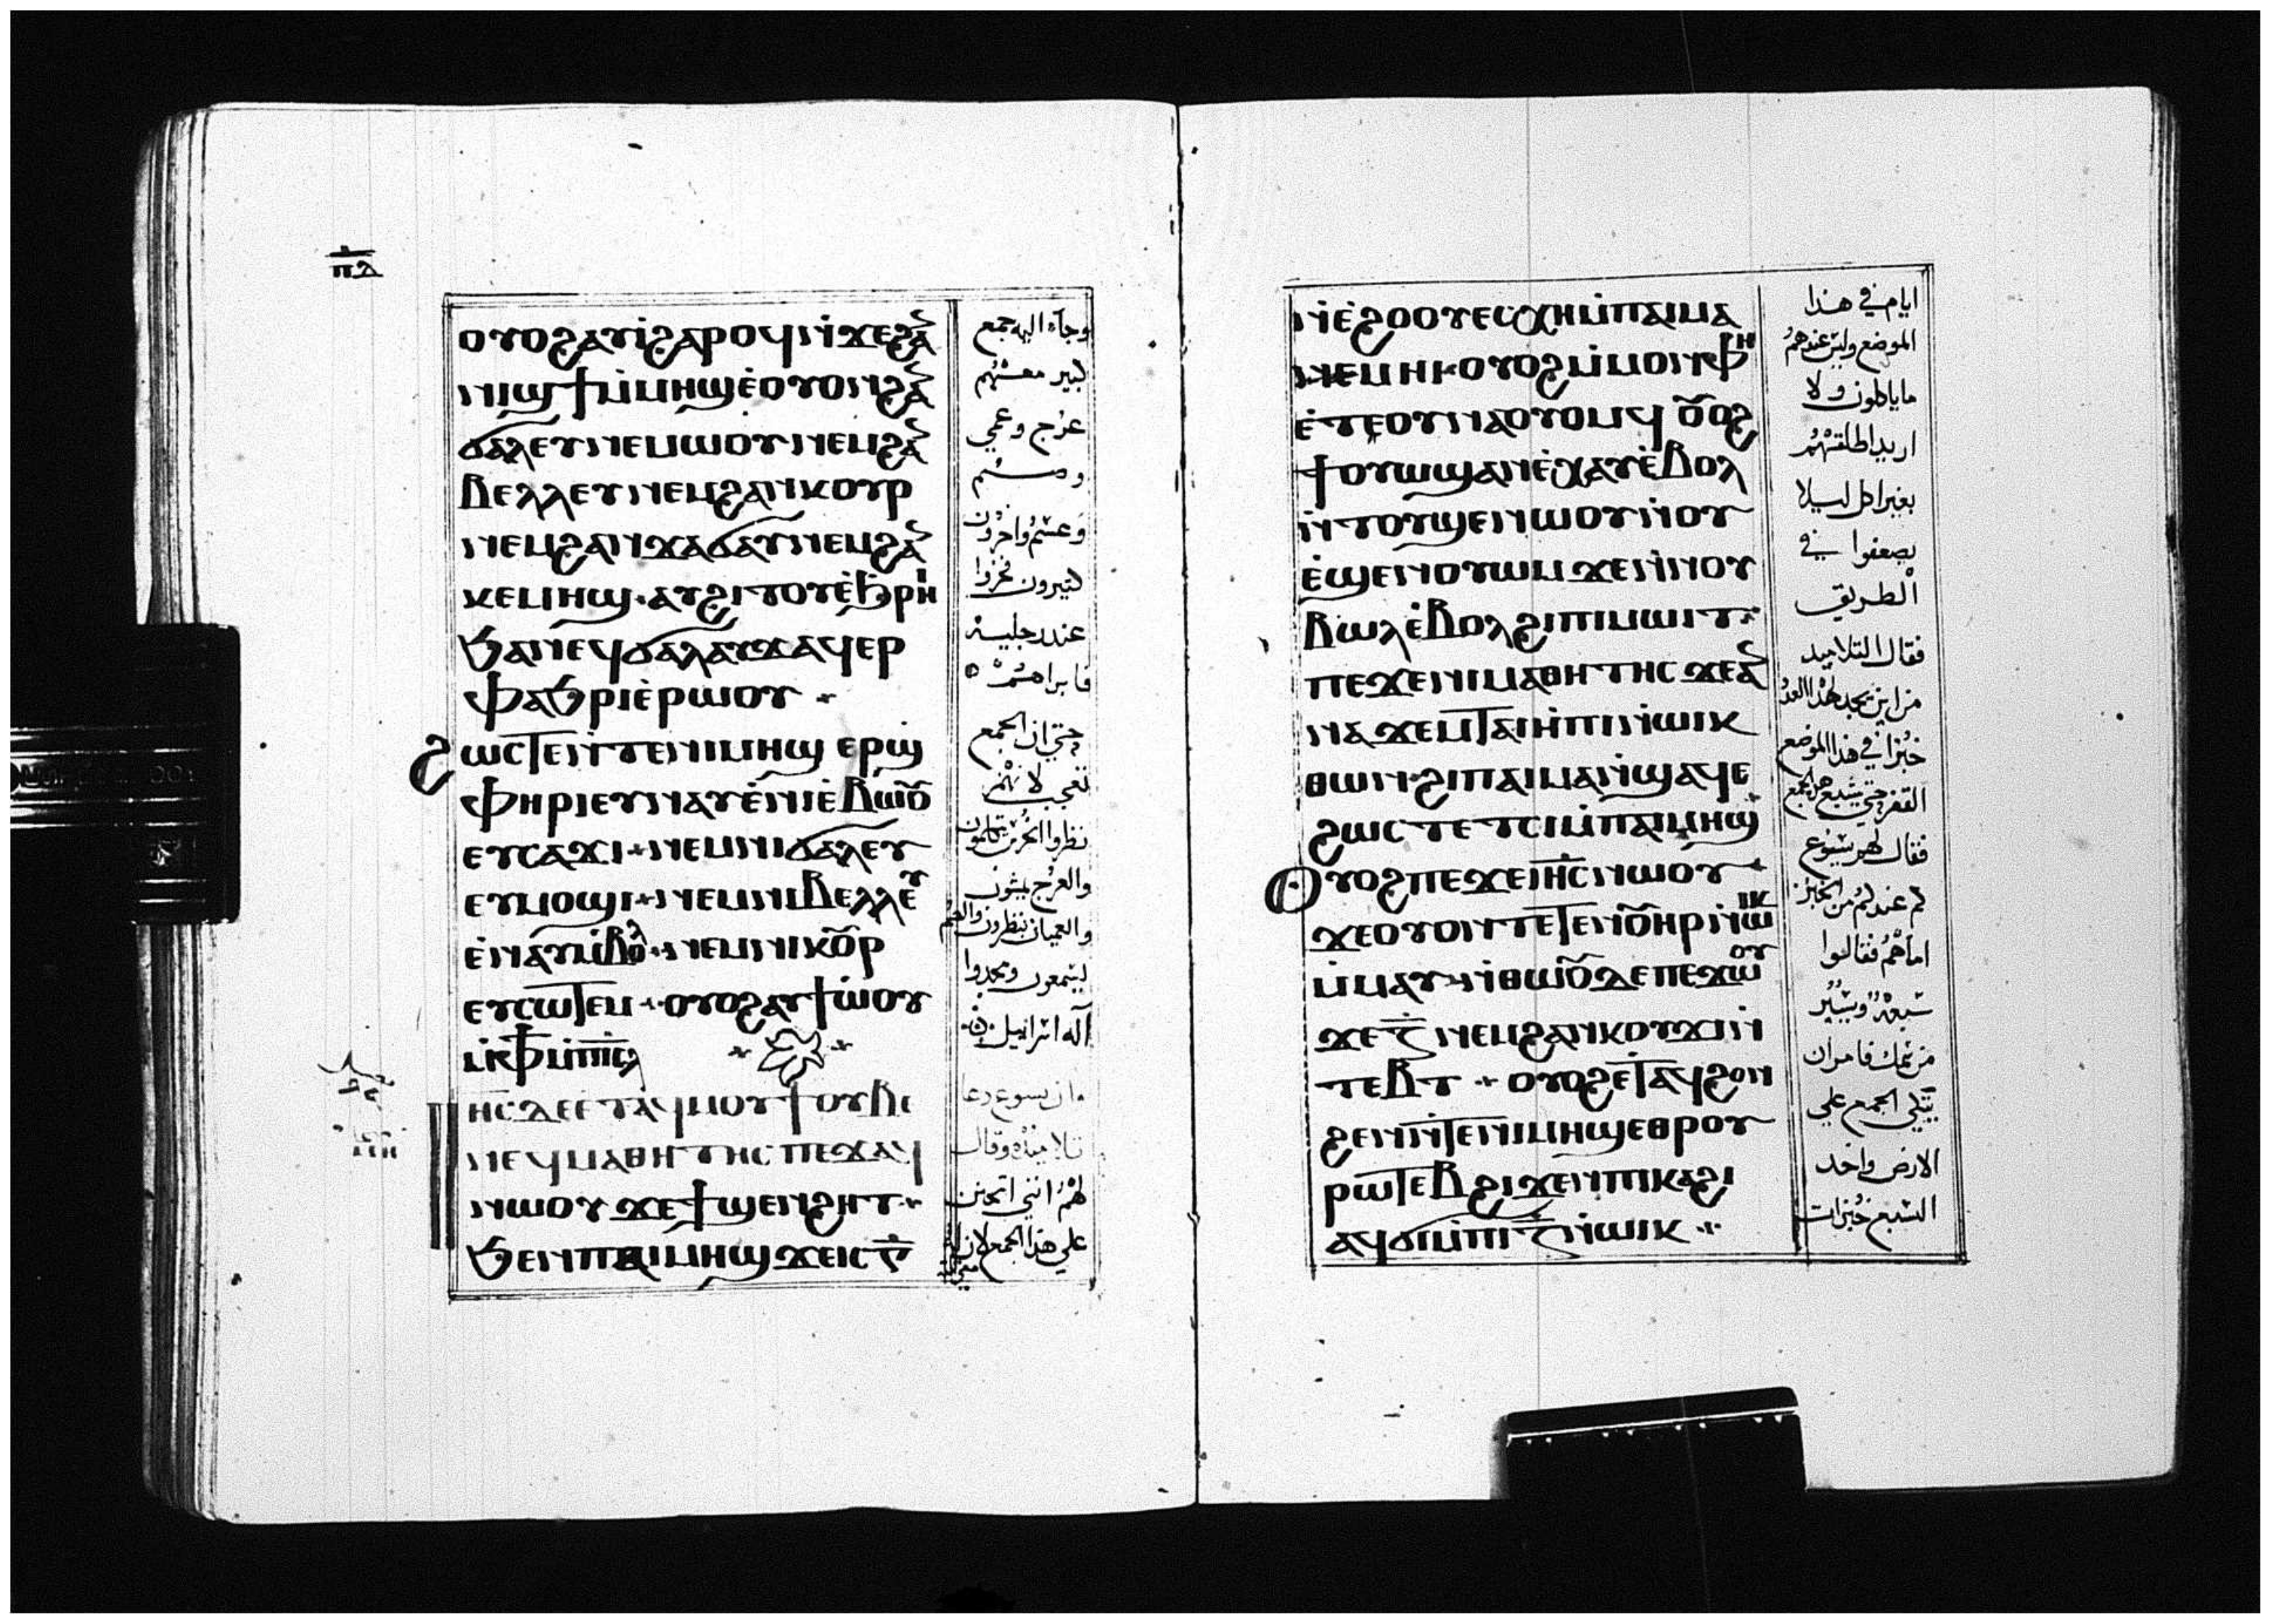 ⲡⲇ
ⲟⲩⲟϩⲁⲩⲓ̀ϩⲁⲣⲟϥⲛ̀ϫⲉϩⲁ̅
ⲛⲓϣϯⲙ̀ⲙⲏϣⲉ̀ⲟⲩⲟⲛϩⲁ̅
ϭⲁⲗⲉⲩⲛⲉⲙⲱⲟⲩⲛⲉⲙϩⲁ̅
ⲃⲉⲗⲗⲉⲩⲛⲉⲙϩⲁⲛⲕⲟⲩⲣ
ⲛⲉⲙϩⲁⲛϫⲁϭⲁⲩⲛⲉⲙϩⲁ̅
ⲕⲉⲙⲏϣ·ⲁⲩϩⲓⲧⲟⲩⲉ̀ϧⲣⲏ
ϧⲁⲛⲉϥϭⲁⲗⲁⲩϫⲁϥⲉⲣ
ⲫⲁϧⲣⲓⲉ̀ⲣⲱⲟⲩ
ϩⲱⲥⲧⲉⲛ̀ⲧⲉⲛⲓⲙⲏϣ ⲉⲣϣ̀
ⲫⲏⲣⲓⲉⲩⲛⲁⲩⲉ̀ⲛⲓⲉ̀ⲃⲱⲟⲩ
ⲉⲩⲥⲁϫⲓ·ⲛⲉⲙⲛⲓϭⲁⲗⲉⲩ
ⲉⲩⲙⲟϣⲓ·ⲛⲉⲙⲛⲓⲃⲉⲗⲗⲉⲩ
ⲉ̀ⲛⲁⲩⲙ̀ⲃⲟⲗ·ⲛⲉⲙⲛⲓⲕⲟⲩⲣ
ⲉⲩⲥⲱⲧⲉⲙ·ⲟⲩⲟϩⲁⲩϯⲱ̀ⲟⲩ
ⲙ̀ⲫϯⲙ̀ⲡⲓⲥ̅ⲗ
ⲓⲏ̅ⲥ̅ⲇⲉⲉⲧⲁϥⲙⲟⲩϯⲟⲩⲃⲉ
ⲛⲉϥⲙⲁⲑⲏⲧⲏⲥⲡⲉϫⲁϥ
ⲛⲱⲟⲩϫⲉϯϣⲉⲛϩⲏⲧ
ϧⲉⲛⲡⲁⲓⲙⲏϣϫⲉⲓⲥⲅ̅
وجاه اليه جمع
كبير معهم
عرج وعمي
وصم
وعسم واخرون
كثيرون فخروا
عند رجليه
فابراهم
حتي ان الجمع
تعجب لانهم
نظروا الخرس يتكلمون
والعرج يمشون
والعميان ينظرون والصم
يسمعون ومجدوا
اله اسرائيل
وان يسوع دعا
تلاميذه وقال
لهم انني اتحنن
علي هذا الجمع لان
ⲛ̀ⲉ̀ϩⲟⲟⲩⲉⲥⲭⲏⲙ̀ⲡⲁⲓⲙⲁ
ⲛⲉⲙⲏⲓ·ⲟⲩⲟϩⲙ̀ⲙⲟⲛⲫⲏ
ⲉ̀ⲧⲉⲟⲩⲛⲁⲟⲩⲟⲙϥ ⲟⲩⲟϩ
ϯⲟⲩⲱϣⲁⲛⲉ̀ⲭⲁⲩⲉ̀ⲃⲟⲗ
ⲛ̀ⲧⲟⲩϣⲉⲛⲱⲟⲩⲛ̀ⲟⲩ
ⲉ̀ϣⲉⲛⲟⲩⲱⲙϫⲉⲛ̀ⲛⲟⲩ
ⲃⲱⲗⲉ̀ⲃⲟⲗϩⲓⲡⲓⲙⲱⲓⲧ
ⲡⲉϫⲉⲛⲓⲙⲁⲑⲏⲧⲏⲥϫⲉⲁ̅
ⲛⲁϫⲉⲙⲧⲁⲓⲏ̀ⲡⲓⲛ̀ⲱⲓⲕ
ⲑⲱⲛ·ϩⲓⲡⲁⲓⲙⲁⲛ̀ϣⲁϥⲉ
ϩⲱⲥⲧⲉⲧⲥⲓⲙ̀ⲡⲁⲓⲙⲏϣ
ⲟⲩⲟϩⲡⲉϫⲉⲓⲏ̅ⲥ̅ⲛⲱⲟⲩ
ϫⲉⲟⲩⲟⲛⲧⲉⲧⲉⲛⲟⲩⲏⲣⲛ̀ⲱⲓⲕ
ⲙ̀ⲙⲁⲩ·ⲛ̀ⲑⲱⲟⲩⲇⲉⲡⲉϫⲱⲟⲩ
ϫⲉⲍ̅ⲛⲉⲙϩⲁⲛⲕⲟⲩϫⲓⲛ̀
ⲧⲉⲃⲧ·ⲟⲩⲟϩⲉⲧⲁϥϩⲟⲛ
ϩⲉⲛⲛ̀ⲧⲉⲛⲓⲙⲏϣⲉⲑⲣⲟⲩ
ⲣⲱⲧⲉⲃϩⲓϫⲉⲛⲡⲓⲕⲁϩⲓ
ⲁϥϭⲓⲙ̀ⲡⲓⲍ̅ⲛ̀ⲱⲓⲕ
ايام في هذا
الموضع وليس عندهم
ما ياكلون ولا
اريد اطلقهم
بغير اكل ليلا
يضعفوا في
الطريق
فقال التلاميذ
من اين نجد هذا العدد
خبزا في هذا الموضع
القفر حتي يشبع هذا الجمع
فقال لهم يسوع
كم عندكم من الخبز
اما هم فقالوا
سبعة ويسير
من سمك فامر ان
يتكي الجمع علي
الارض واخد
السبع خبزات